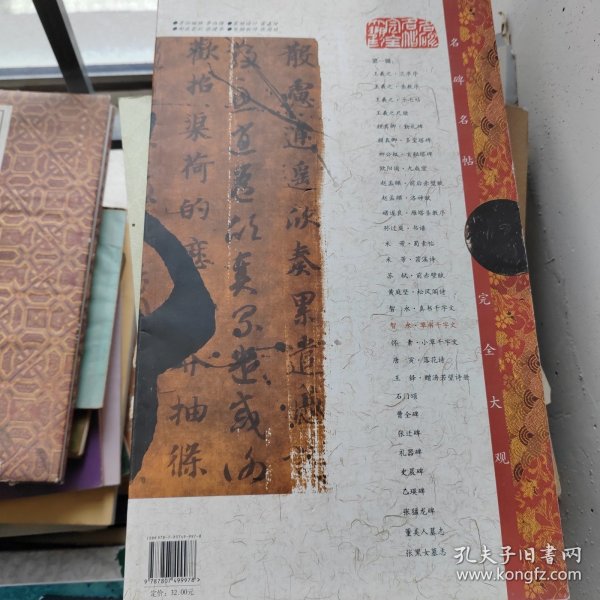 名碑
名帖
完全
大观
名碑名帖完全大观
第一辑:
王羲之·兰亭序
王羲之·圣教序
王羲之·十七帖
王羲之尺牍
颜真卿·勤礼碑
颜真卿·多宝塔碑
柳公权·玄秘塔碑
欧阳询·九成宫
赵孟頫·前后赤壁赋
赵孟頫·洛神赋
褚遂良·雁塔圣教序
孙过庭·书谱
米芾·蜀素帖
米芾·苕溪诗
苏轼·前赤壁赋
黄庭坚·松风阁诗
智永·真书千字文
智永·草书千字文
怀素·小草千字文
唐寅·落花诗
王铎·赠汤若望诗册
石门颂
曹全碑
张迁碑
礼器碑
史晨碑
乙瑛碑
张猛龙碑
董美人墓志
张黑女墓志
散慮逍遥欣奏累遣
散慮逍遥欣奏累遣
歡招渠荷的歷
抽條
9787807499978
定价：32.00元
孔夫子旧书网
www.kongfz.com